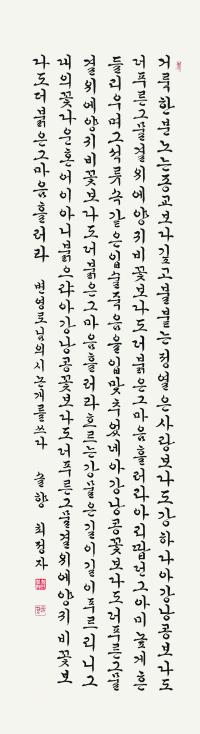 거룩한분노는종교보다깊고불붙는정열은사랑보다도강하다아강낭콩보다도
더푸른그물결위에양귀비꽃보다도더붉은그마음흘러라아리땁던그아미높게흔
들리우며그석류속같은입술죽음을입맞추었네아강낭콩꽃보다도더푸른그물
결위에양귀비꽃보다도더붉은그마음흘러라흐르는강물은길이길이푸르리니그
대의꽃다운혼어이아니붉으랴아강낭콩꽃보다도더푸른그물결위에양귀비꽃보
다도더붉은그마음흘러라 변영로님의시논개를쓰다 솔향 최정자